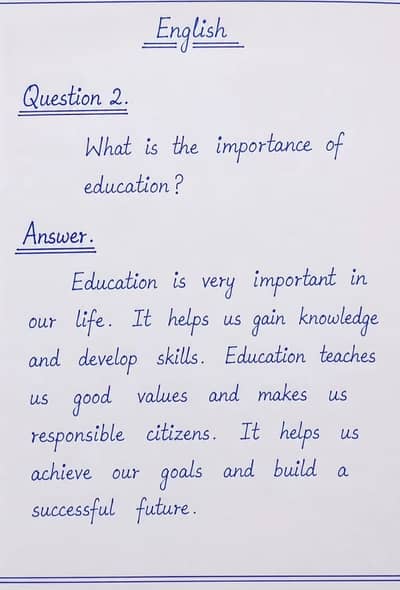 English
Question 2.
What is the importance of
education?
Answer.
Education is very important in
our life. It helps us gain knowledge
and develop skills. Education teaches
us good values and makes us
responsible citizens. It helps us
achieve our goals and build a
successful future.